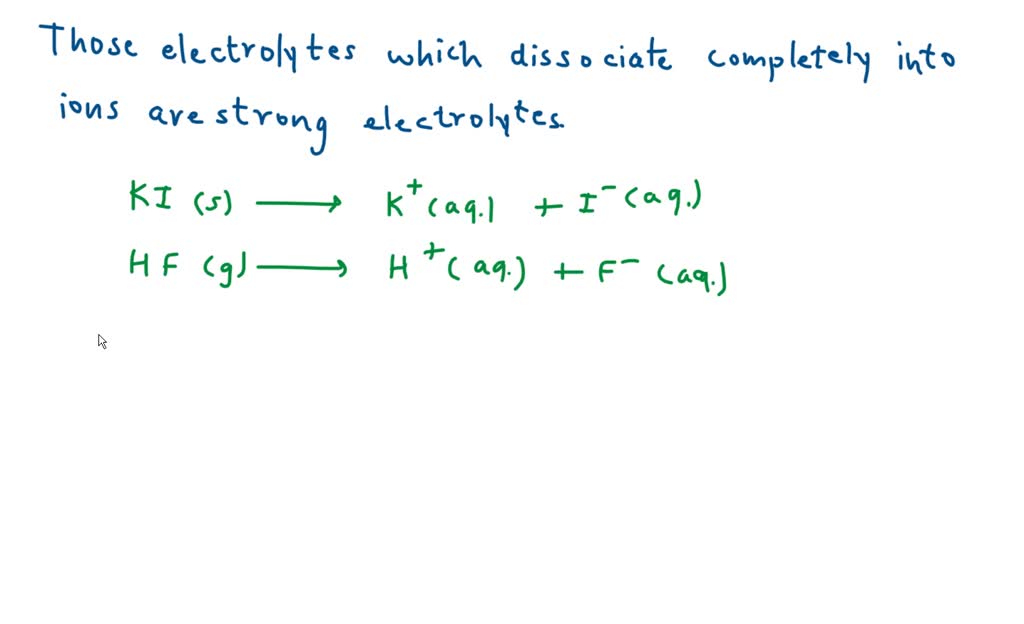 Those electrolytes which dissociate completely into
ions are strong electrolytes.
KI (s) ⟶ K⁺(aq.) + I⁻(aq.)
HF (g) ⟶ H⁺(aq.) + F⁻(aq.)